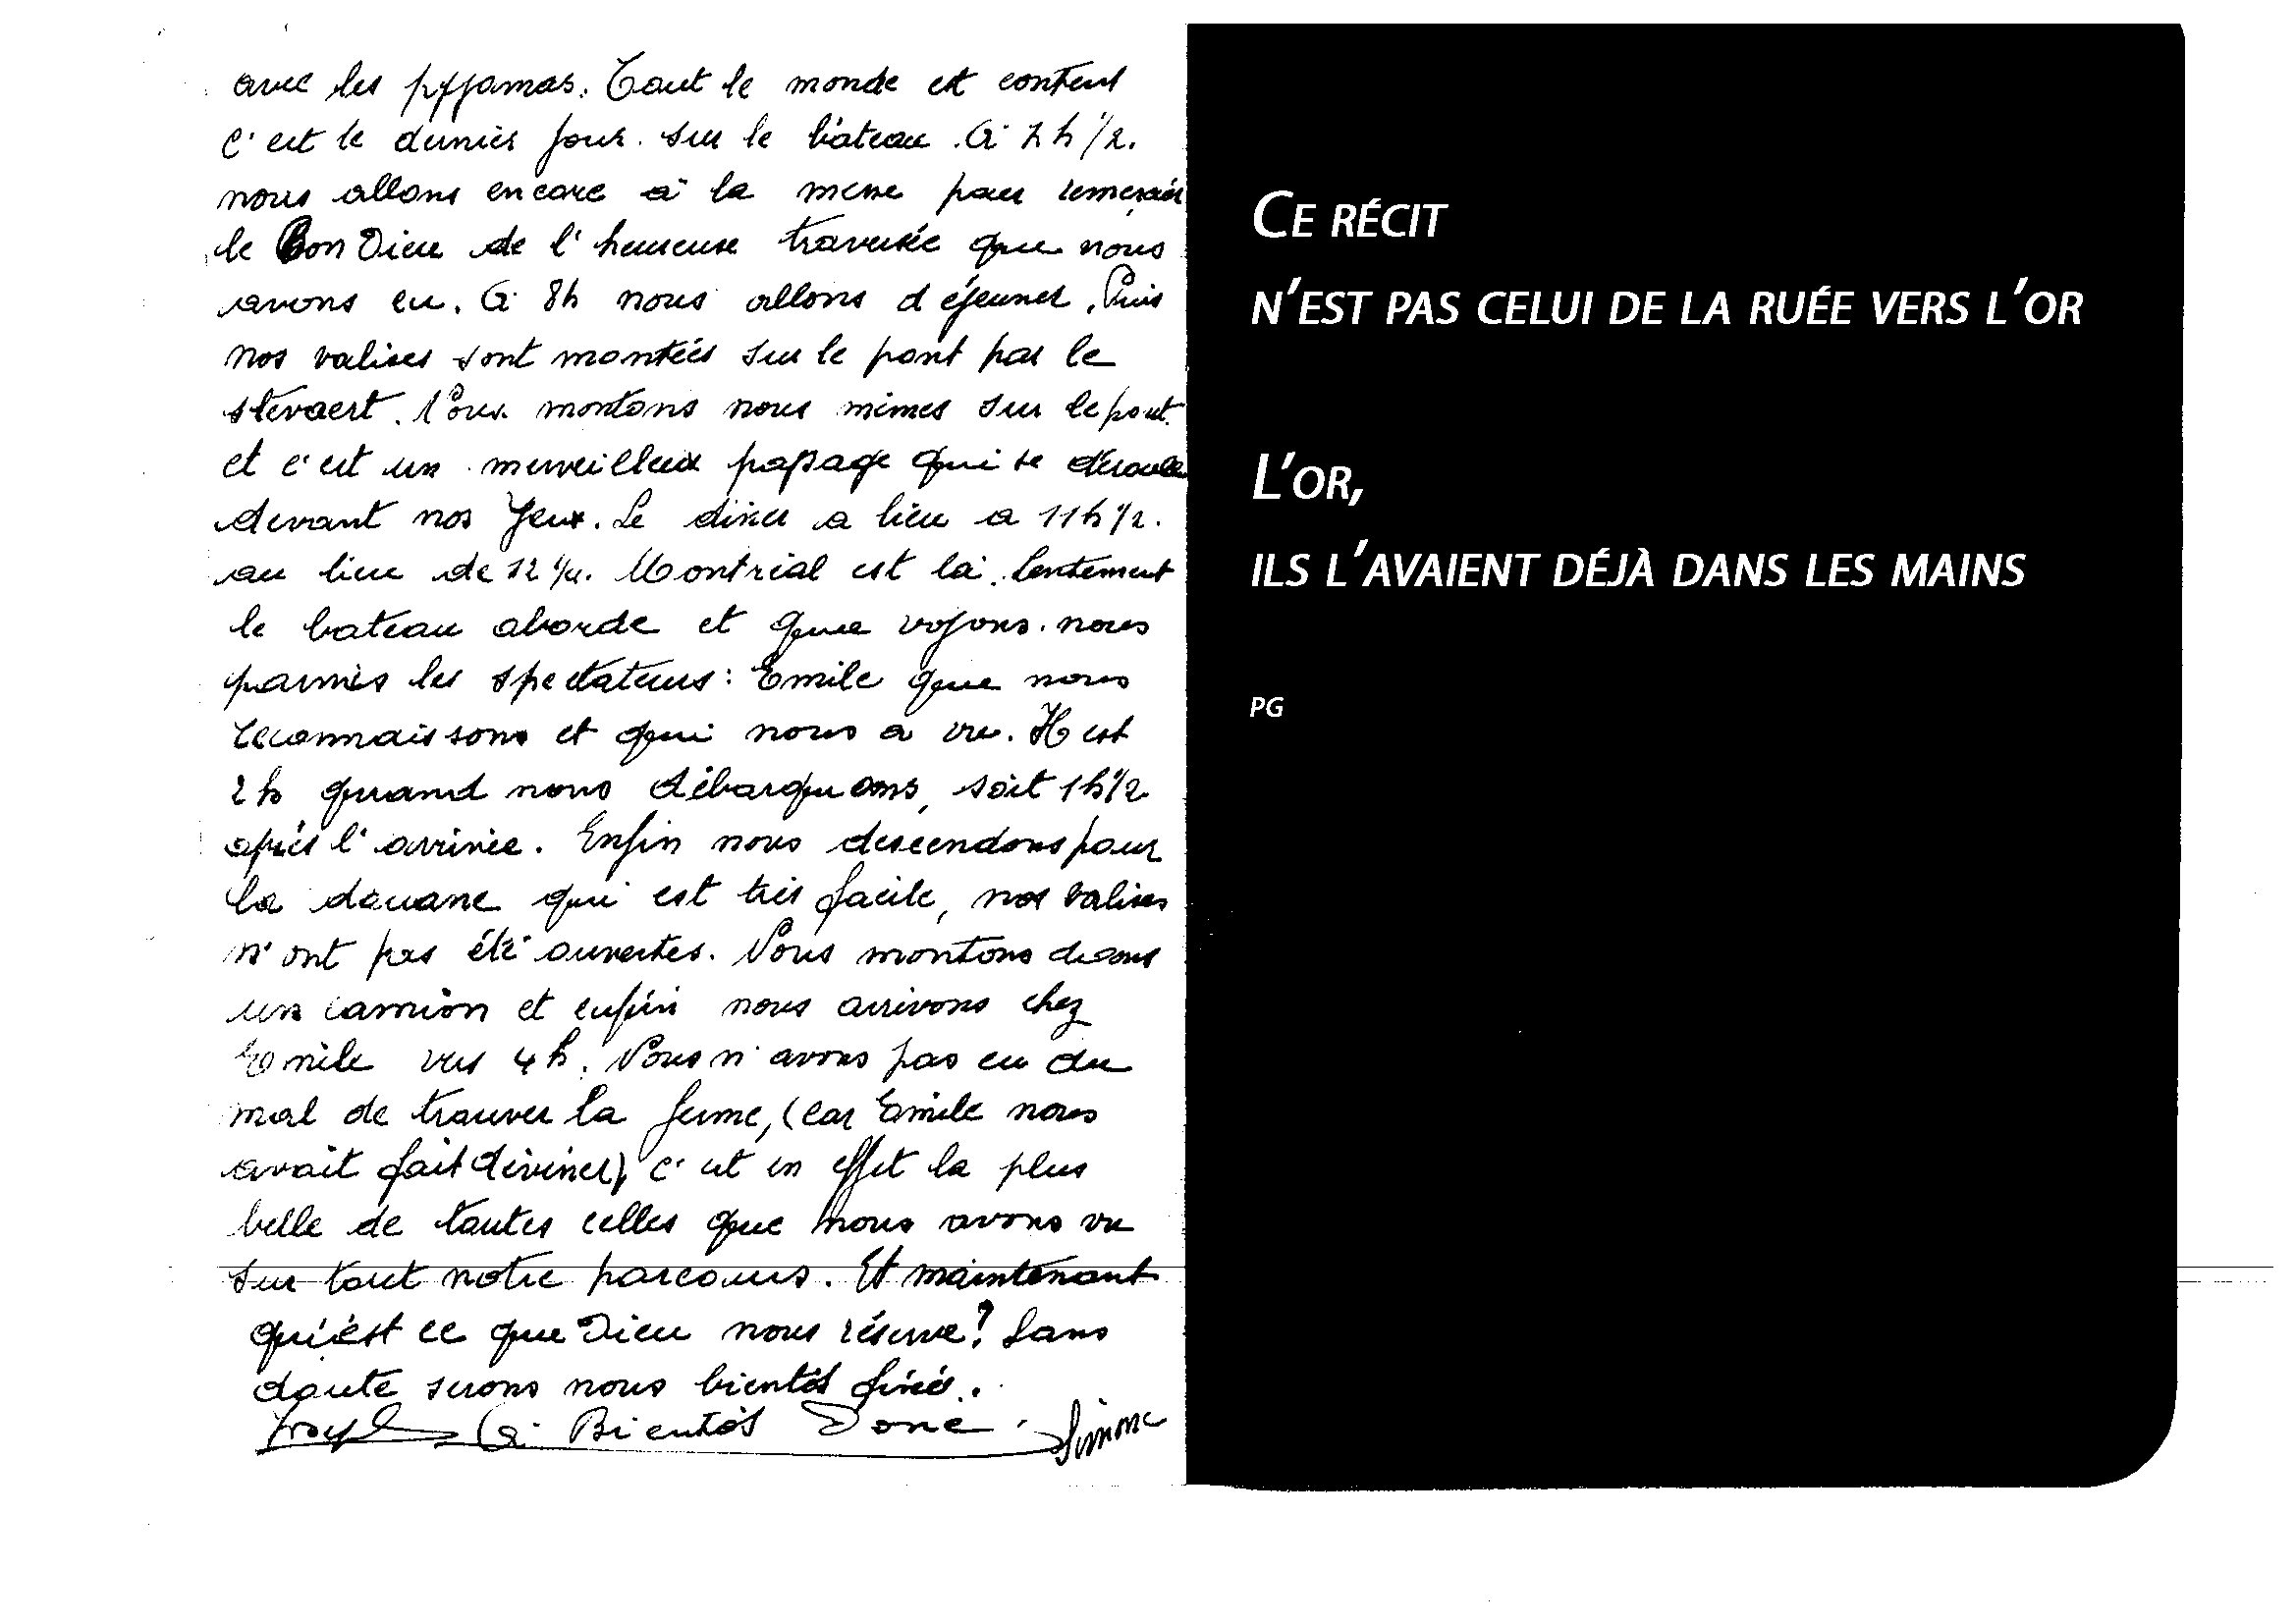 avec les pyjamas. Tout le monde est content
c'est le dernier jour sur le bateau. A 7h 1/2.
nous allons encore à la messe pour remercier
le Bon Dieu de l'heureuse traversée que nous
avons eu. A 8h nous allons déjeuner. Puis
nos valises sont montées sur le pont par le
stevaert. Nous montons nous mêmes sur le pont.
et c'est un merveilleux paysage qui se déroule
devant nos yeux. Le diner a lieu a 11h 1/2.
au lieu de 12 1/4. Montréal est là. lentement
le bateau aborde et que voyons-nous
parmis les spectateurs : Emile que nous
reconnaissons et qui nous a vu. Il est
2h quand nous débarquons, soit 1h 1/2
après l'arrivée. Enfin nous descendons pour
la douane qui est très facile, nos valises
n'ont pas été ouvertes. Nous montons dans
un camion et enfin nous arrivons chez
Emile vers 4h. Nous n'avons pas eu du
mal de trouver la ferme, (car Emile nous
avait fait deviner), c'est en effet la plus
belle de toutes celles que nous avons vu
sur tout notre parcours. Et maintenant
qu'est ce que Dieu nous réserve? Sans
doute serons nous bientôt fixés.
Joseph A Bientôt Donc. Simone
CE RÉCIT
N'EST PAS CELUI DE LA RUÉE VERS L'OR
L'OR,
ILS L'AVAIENT DÉJÀ DANS LES MAINS
PG